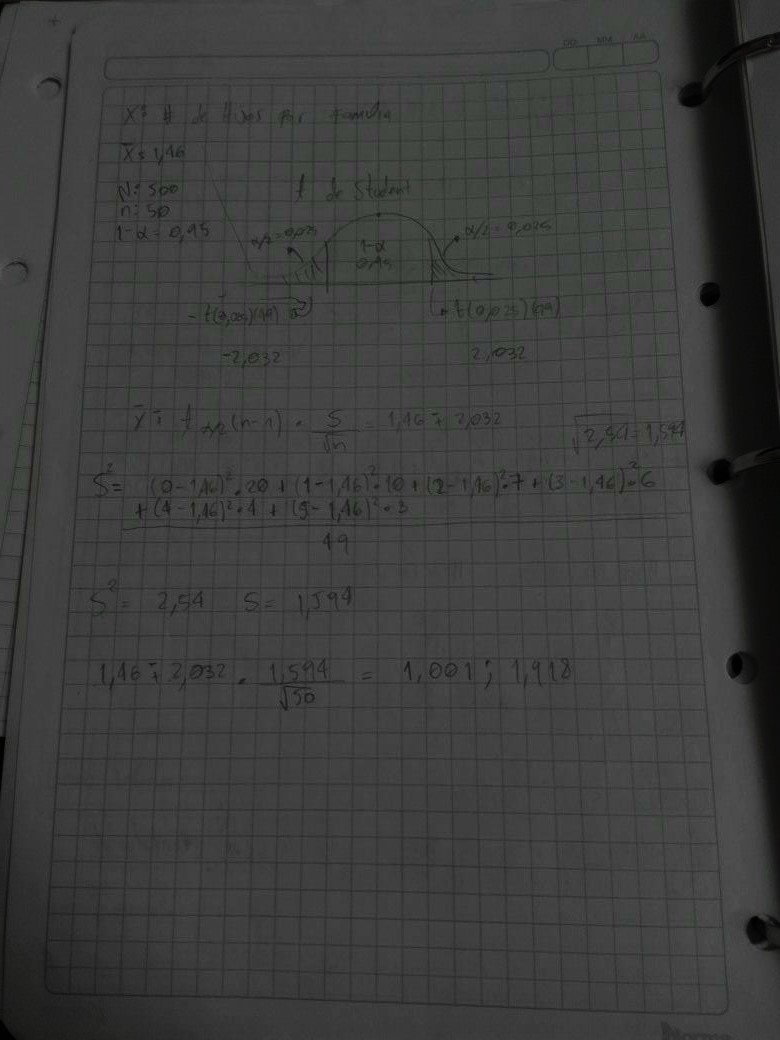 DD MM AA
X: # de Hijos por Familia
X̄ = 1,46
N: 500
n: 50
1-α = 0,95
t de Student
α/2 = 0,025
α/2 = 0,025
1-α
0,95
-t(0,025)(49)
t(0,025)(49)
-2,032
2,032
X̄ ∓ t α/2 (n-1) · S/√n = 1,46 ∓ 2,032
√2,54 = 1,594
S² = (0-1,46)²·20 + (1-1,46)²·10 + (2-1,46)²·7 + (3-1,46)²·6
+ (4-1,46)²·4 + (5-1,46)²·3
49
S² = 2,54 S = 1,594
1,46 ∓ 2,032 · 1,594/√50 = 1,001 ; 1,918
Norma